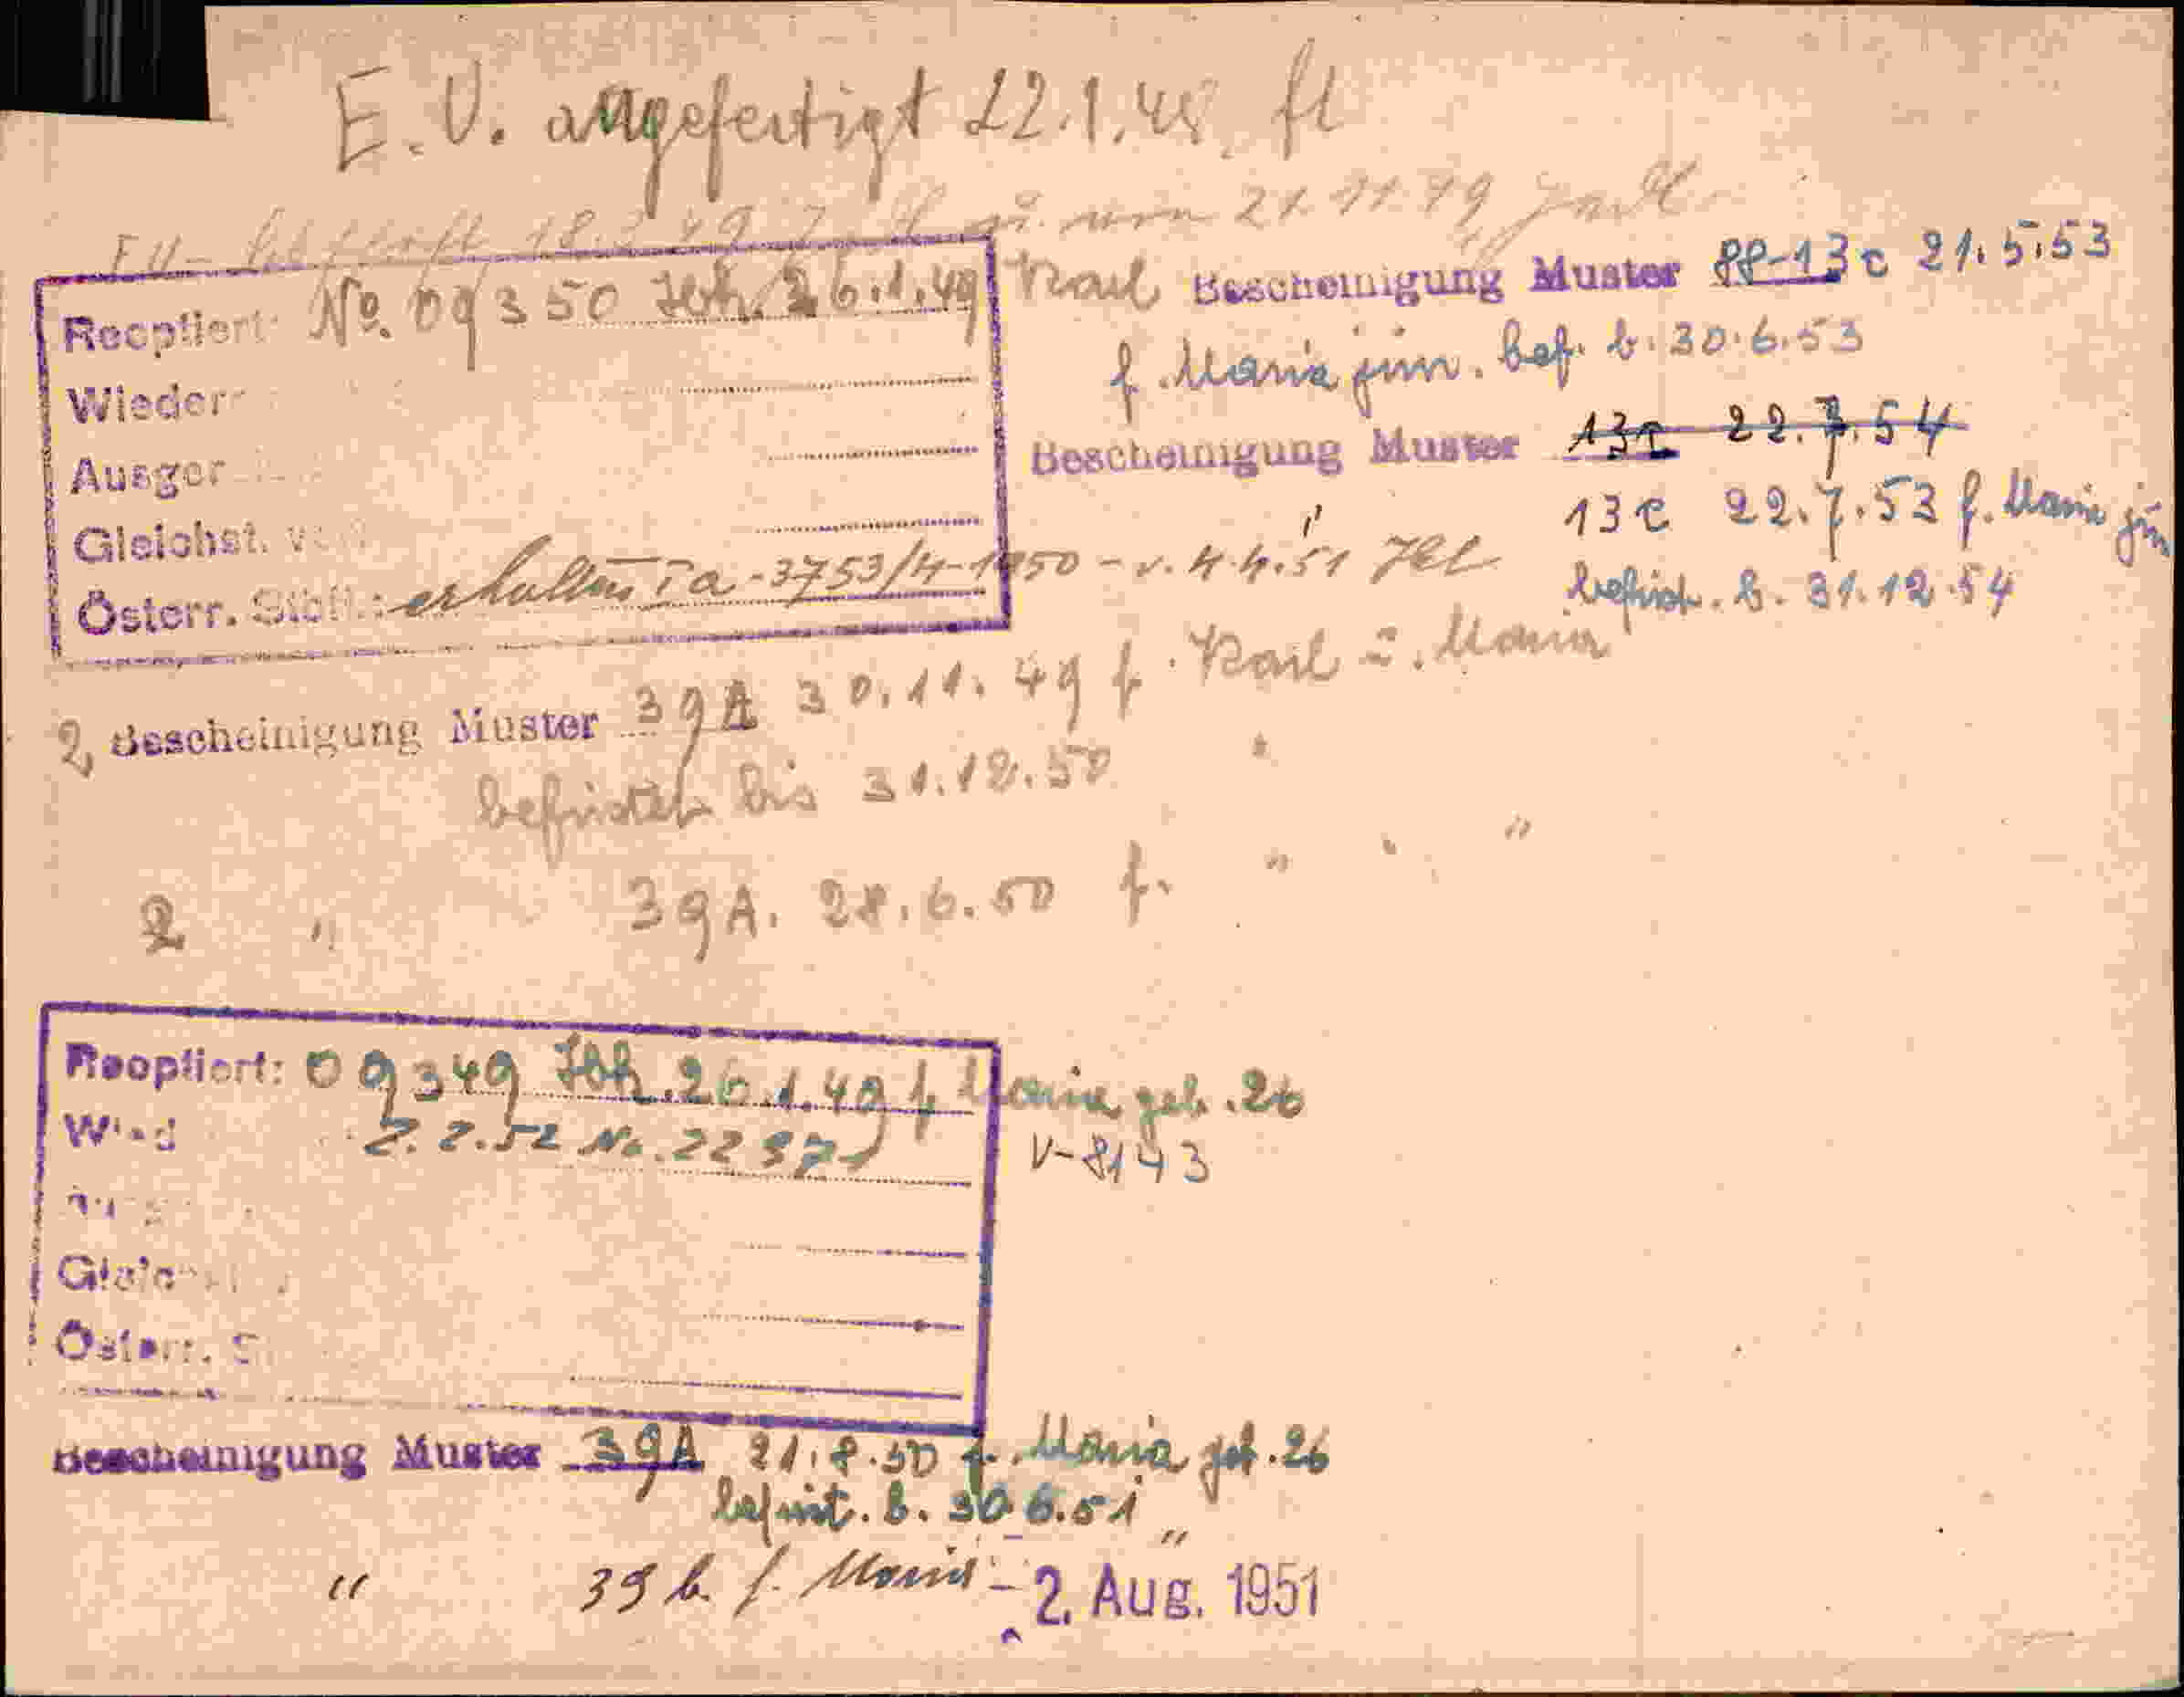 E.V. angefertigt 22.1.48. fl
EV- 18.2.49 vom 21.11.49
Reoptiert: No. 09350 Ibk. 26.1.49 Karl
Wieder
Ausger
Gleichst. v
Österr. Stb.: erhalten Ia-3753/4-1950 - v. 4.4.51
Bescheinigung Muster 13c 21.5.53
f. Maria jun. bef. b. 30.6.53
Bescheinigung Muster 13c 22.7.54
13c 22.7.53 f. Maria jun
befrist. b. 31.12.54
2, Bescheinigung Muster 39A 30.11.49 f. Karl u. Maria
befristet bis 31.12.50
2 " 39A. 28.6.50 f. " " "
Reoptiert: 09349 Ibk. 26.1.49 f. Maria geb. 26
Wied 7.2.52 No. 22571 V-8143
Gleich
Österr. S
Bescheinigung Muster 39A 21.8.50 f. Maria geb. 26
befrist. b. 30.6.51 "
" 39 b. f. Maria - 2. Aug. 1951